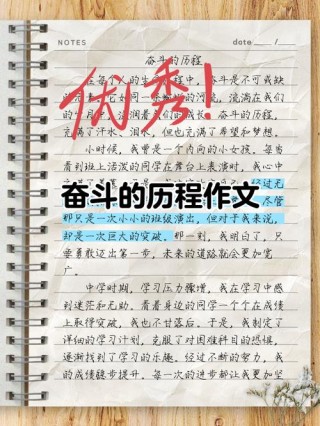 NOTES
date ___/___
奋斗的历程
优秀!
在每个人的生 程中,奋斗是不可或缺
流淌在我们
成长。奋斗,
充满了汗水、泪水,但也充满了希望和梦想。
小时候,我曾是一个内向的小女孩。每当
看到班上活泼的同学在舞台上表演时,我心中
经过无
奋斗的历程作文
尽管
那只是一次小小的班级演出,但对于我来说,
却是一次巨大的突破。那一刻,我明白了,只
要勇敢迈出第一步,未来的道路就会更加宽
广。
中学时期,学习压力骤增,我在学习中感
到迷茫和无助。看着身边的同学一个个在成绩
上取得突破,我也不甘落后。于是,我制定了
详细的学习计划,克服了对困难科目的恐惧,
逐渐找到了学习的乐趣。经过不断的努力,我
的成绩稳步提升。每一次的进步都让我更加坚